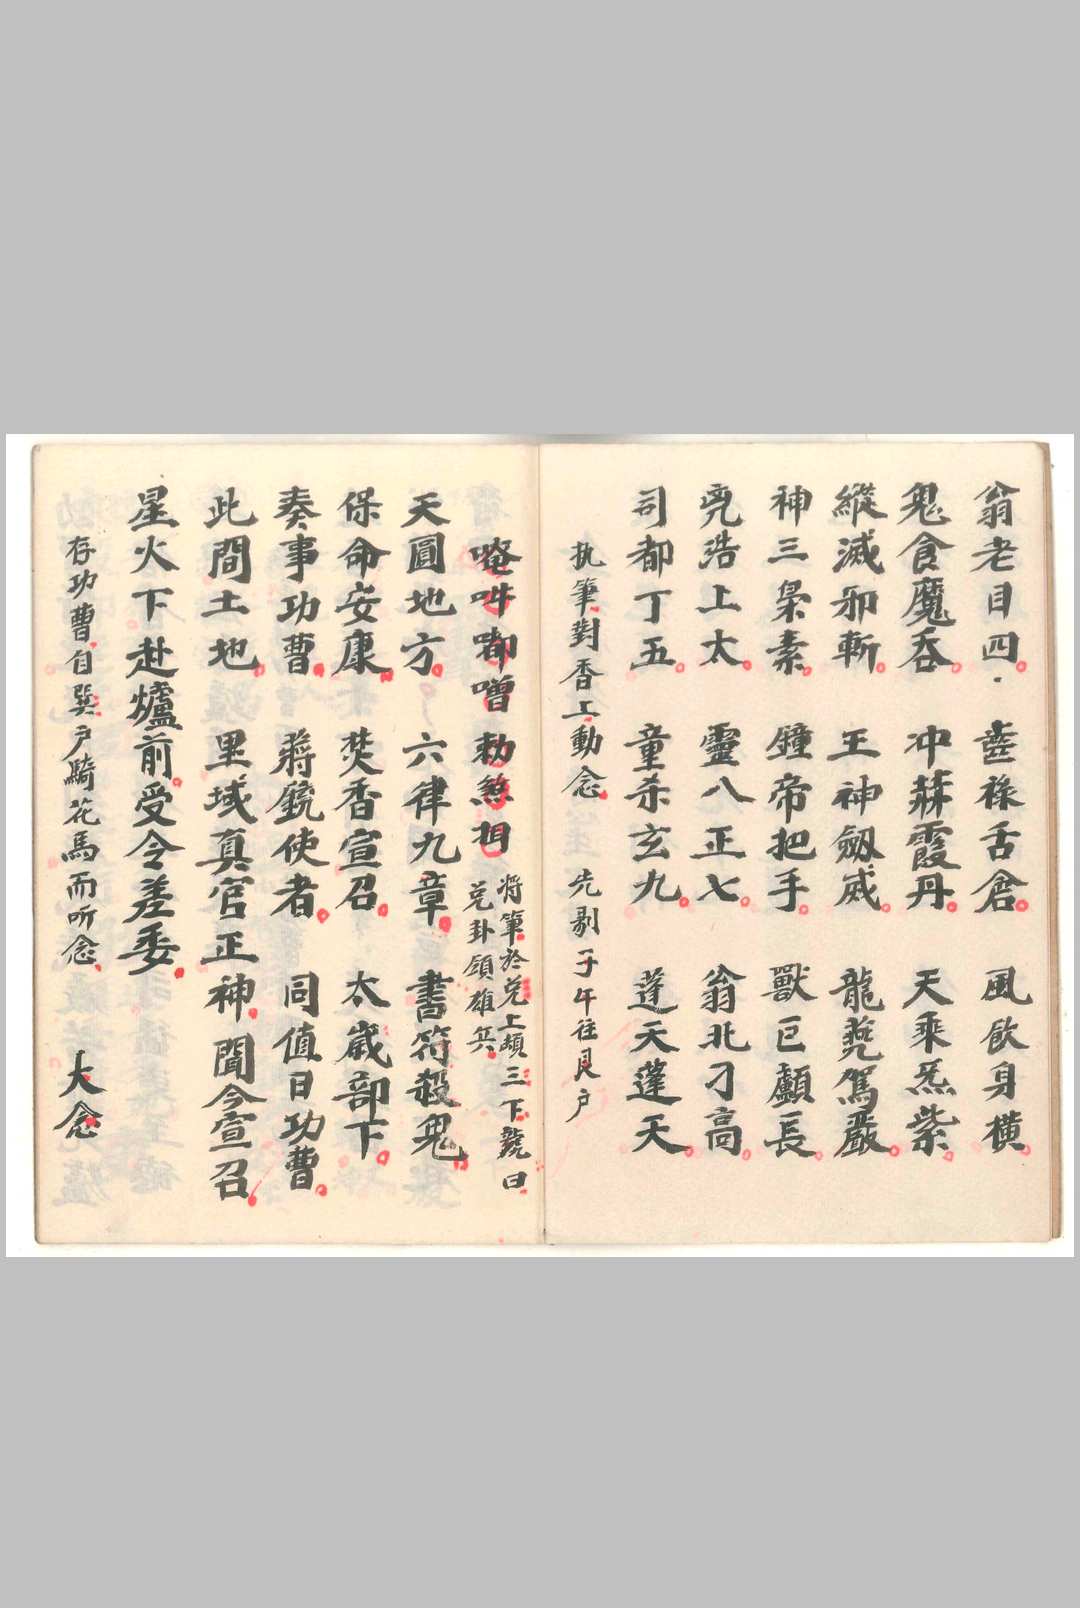 翁老目四。齒祿舌倉。風飲身橫。
鬼食魔吞。冲赫霞丹。天乘炁紫。
縱滅邪斬。王神劔威。龍堯駕嚴。
神三梟素。鐘帝把手。獸巨顱長。
堯浩上太。靈八正七。翁北刁高。
司都丁五。童杀玄九。蓬天蓬天。
执筆對香上動念。先剔子午往艮户
唵吽啣噌勅煞相
將筆於兑上頡三下號曰
兑卦領雄兵
天圓地方。六律九章。書符殺鬼。
保命安康。焚香宣召。太歲部下。
奏事功曹。蔣鋭使者。同值日功曹。
此間土地。里域真官正神。聞今宣召。
星火下赴爐前。受令差委。
存功曹自巽户騎花馬而听念。大念